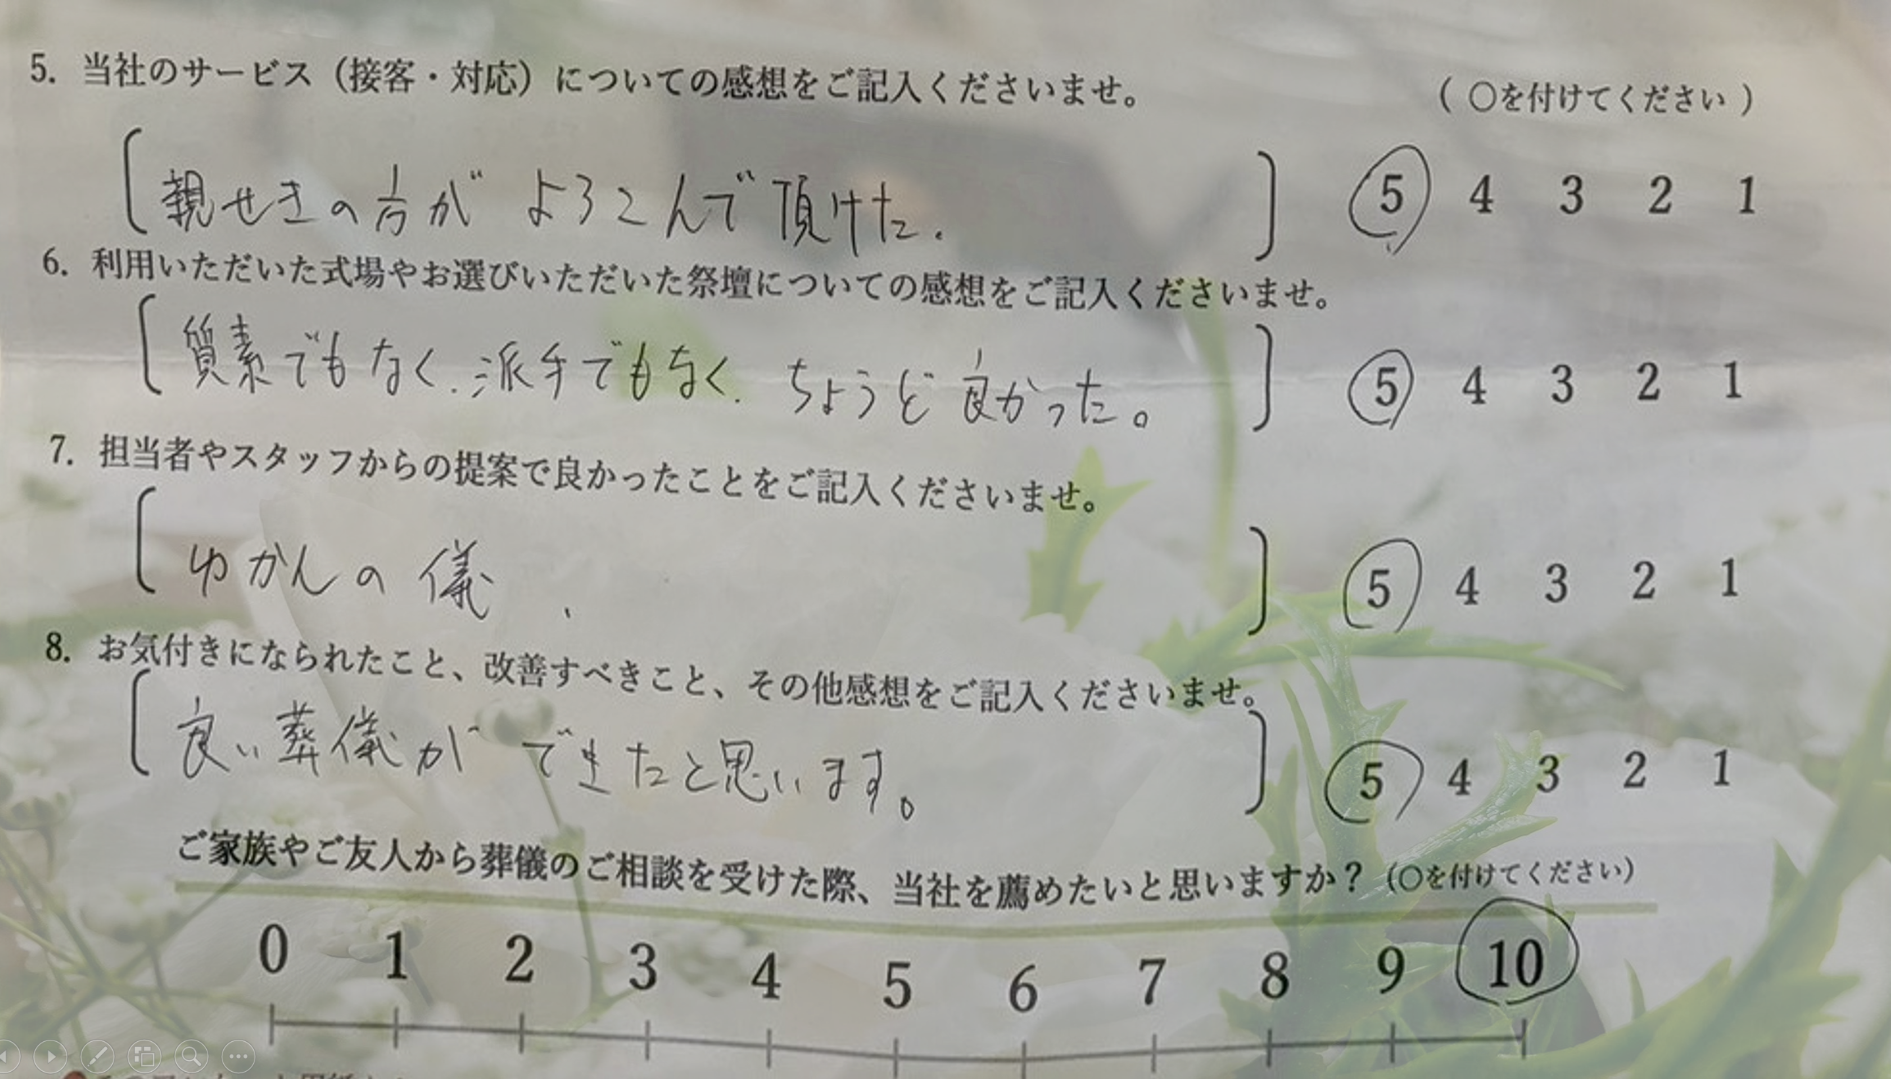 5. 当社のサービス（接客・対応）についての感想をご記入くださいませ。 （ ○を付けてください ）
親せきの方が よろこんで頂けた. 5 4 3 2 1
6. 利用いただいた式場やお選びいただいた祭壇についての感想をご記入くださいませ。
質素でもなく. 派手でもなく. ちょうど良かった。 5 4 3 2 1
7. 担当者やスタッフからの提案で良かったことをご記入くださいませ。
ゆかんの儀 、 5 4 3 2 1
8. お気付きになられたこと、改善すべきこと、その他感想をご記入くださいませ。
良い葬儀が できたと思います。 5 4 3 2 1
ご家族やご友人から葬儀のご相談を受けた際、当社を薦めたいと思いますか？（○を付けてください）
0 1 2 3 4 5 6 7 8 9 10